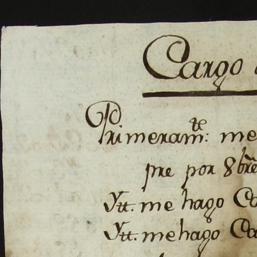 Cargo
Primeram.te me
pre por 8bre
Ytt. me hago Ca
Ytt. me hago Ca